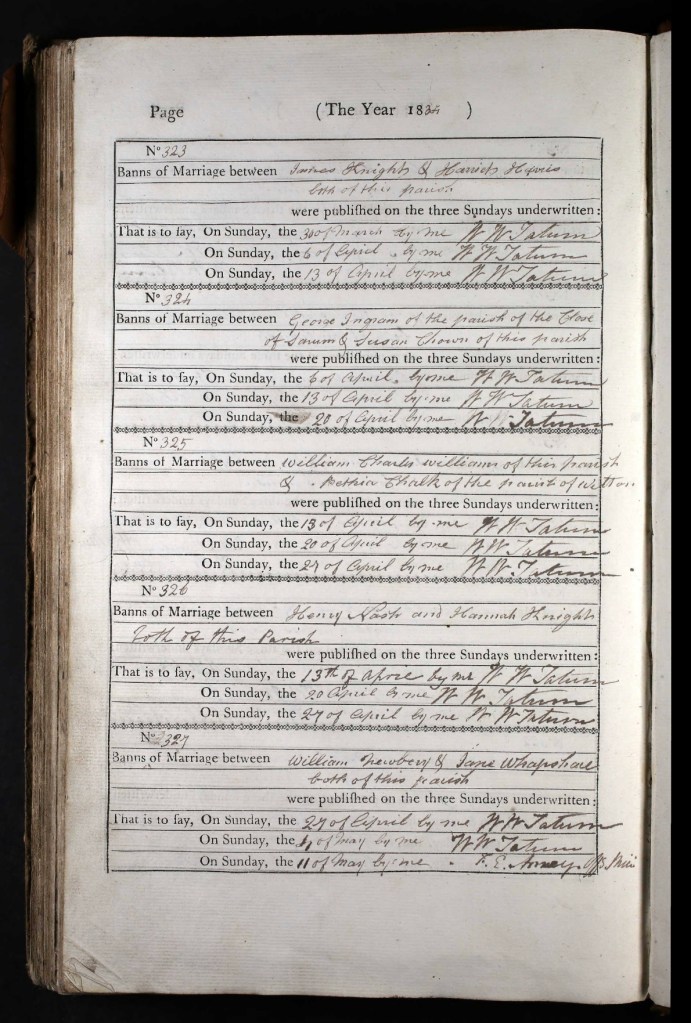 Page (The Year 1834 )
No 323
Banns of Marriage between James Knight & Harriet Harris
both of this parish
were publiſhed on the three Sundays underwritten:
That is to ſay, On Sunday, the 30 of March by me W W Tatum
On Sunday, the 6 of April by me W W Tatum
On Sunday, the 13 of April by me W W Tatum
No 324
Banns of Marriage between George Ingram of the parish of the Close
of Sarum & Susan Chown of this parish
were publiſhed on the three Sundays underwritten:
That is to ſay, On Sunday, the 6 of April by me W W Tatum
On Sunday, the 13 of April by me W W Tatum
On Sunday, the 20 of April by me W Tatum
No 325
Banns of Marriage between William Charles Williams of this parish
& Bethia Chalk of the parish of Wilton
were publiſhed on the three Sundays underwritten:
That is to ſay, On Sunday, the 13 of April by me W W Tatum
On Sunday, the 20 of April by me W W Tatum
On Sunday, the 27 of April by me W W Tatum
No 326
Banns of Marriage between Henry Nash and Hannah Knight
both of this Parish
were publiſhed on the three Sundays underwritten:
That is to ſay, On Sunday, the 13th of April by me W W Tatum
On Sunday, the 20 April by me W W Tatum
On Sunday, the 27 of April by me W W Tatum
No 327
Banns of Marriage between William Newbery & Jane Whapshare
both of this parish
were publiſhed on the three Sundays underwritten:
That is to ſay, On Sunday, the 27 of April by me W W Tatum
On Sunday, the 4 of May by me W W Tatum
On Sunday, the 11 of May by me F. E. Arney